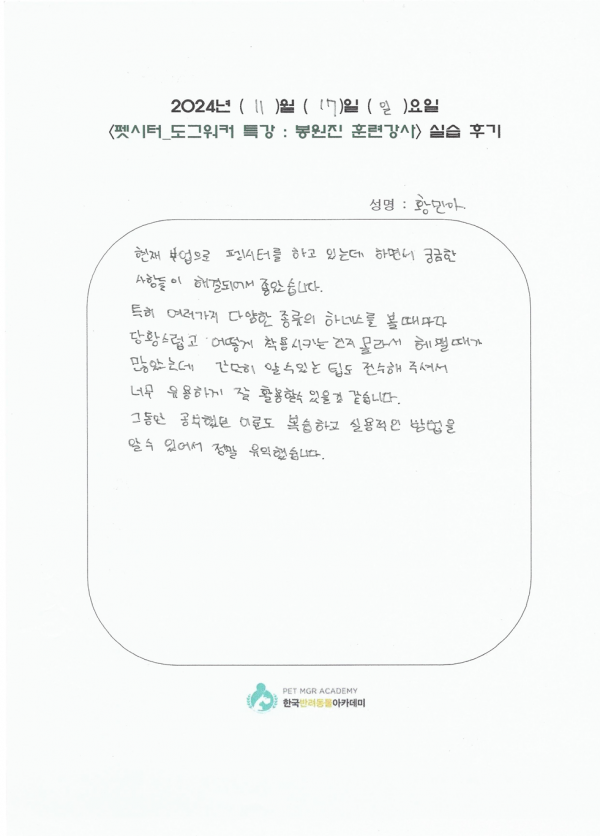 2024년 ( 11 )월 ( 17 )일 ( 일 )요일
<펫시터_도그워커 특강 : 봉원진 훈련강사> 실습 후기
성명 : 황민아
현재 부업으로 펫시터를 하고 있는데 하면서 궁금한
사항들이 해결되어서 좋았습니다.
특히 여러가지 다양한 종류의 하네스를 볼때마다
당황스럽고 어떻게 착용시키는건지 몰라서 헤멜때가
많았는데 간단히 알수있는 팁도 전수해 주셔서
너무 유용하게 잘 활용할수 있을것 같습니다.
그동안 공부했던 이론도 복습하고 실용적인 방법을
알수 있어서 정말 유익했습니다.
PET MGR ACADEMY
한국반려동물아카데미